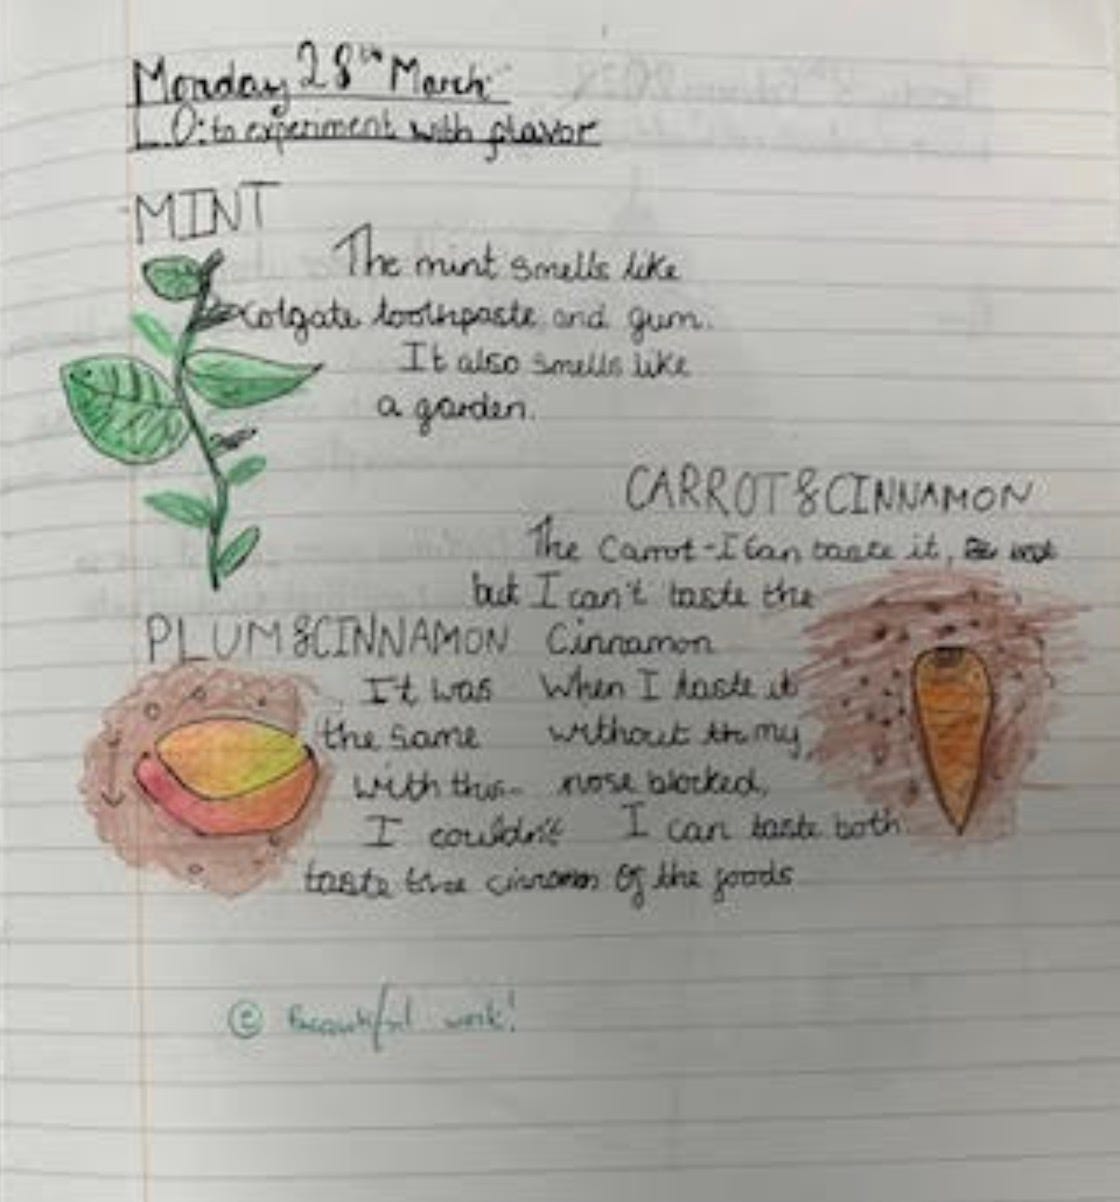 Monday 28th March
L.O: to experiment with flavor
MINT
The mint smells like
colgate toothpaste and gum.
It also smells like
a garden.
CARROT & CINNAMON
The Carrot - I can taste it,
but I can't taste the
Cinnamon
When I taste it
without my
nose blocked,
I can taste both
of the foods
PLUM & CINNAMON
It was
the same
with this
I couldn't
taste the cinnamon
Beautiful work!